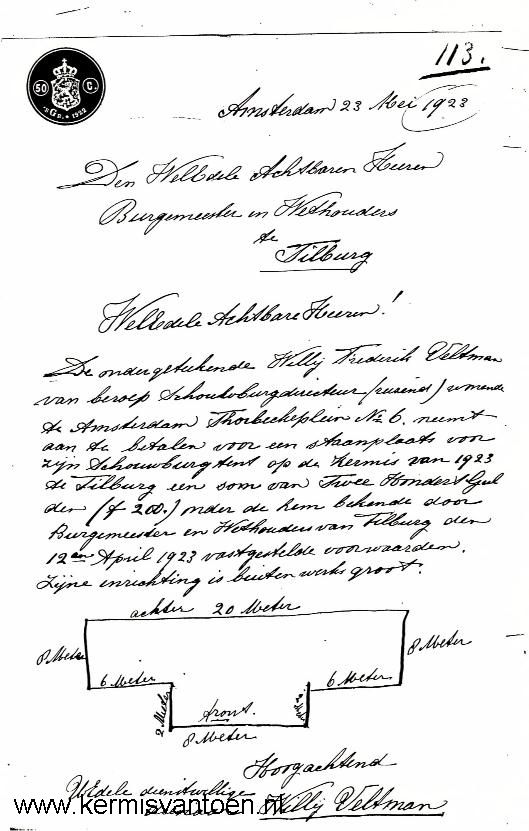 113.
50 C.
Amsterdam 23 Mei 1923
Den WelEdele Achtbaren Heeren
Burgemeester en Wethouders
te
Tilburg
WelEdele Achtbare Heeren!
De ondergetekende Willy Frederik Veltman
van beroep Schouwburgdirecteur (reizend) wonende
te Amsterdam Thorbeckeplein No 6. neemt
aan te betalen voor een staanplaats voor
zijn Schouwburgtent op de Kermis van 1923
te Tilburg een som van Twee Honderd Gul
den (f 200.) onder de hem bekende door
Burgemeester en Wethouders van Tilburg den
12en April 1923 vastgestelde voorwaarden.
Zijne inrichting is buiten werks groot:
achter 20 Meter
8 Meter
8 Meter
6 Meter
6 Meter
2 Meter
front.
8 Meter
Hoogachtend
UEdele dienstwillige
Willy Veltman
www.kermisvantoen.nl